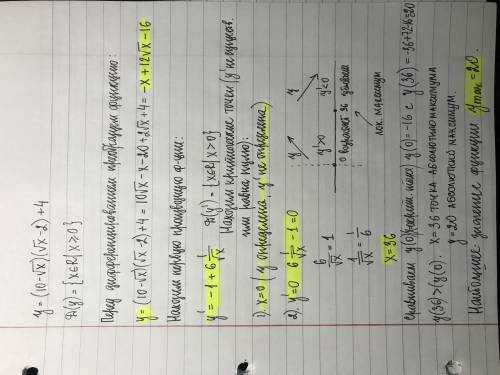 y = (10-√x)(√x-2)+4
D(y) = {x∈R | x≥0}
Перед дифференцированием преобразуем функцию:
y = (10-√x)(√x-2)+4 = 10√x-x-20+2√x+4 = -x+12√x-16
Находим первую производную ф-ции:
y' = -1+6 1/√x D(y') = {x∈R | x>0}
Находим критические точки (y' не существ.
или равна нулю):
1). x=0 (y определена, y' не определена)
2). y'=0 6 1/√x -1=0
6/√x = 1
1/√x = 1/6
x=36
y y
y'>0 y'<0
0 возрастает 36 убывает
лок. максимум
Сравниваем y(0) y(0) = -16 с y(36) = -36+72-16=20
y(36)>y(0). x=36 точка абсолютного максимума
y=20 абсолютный максимум.
Наибольшее значение функции ymax = 20.